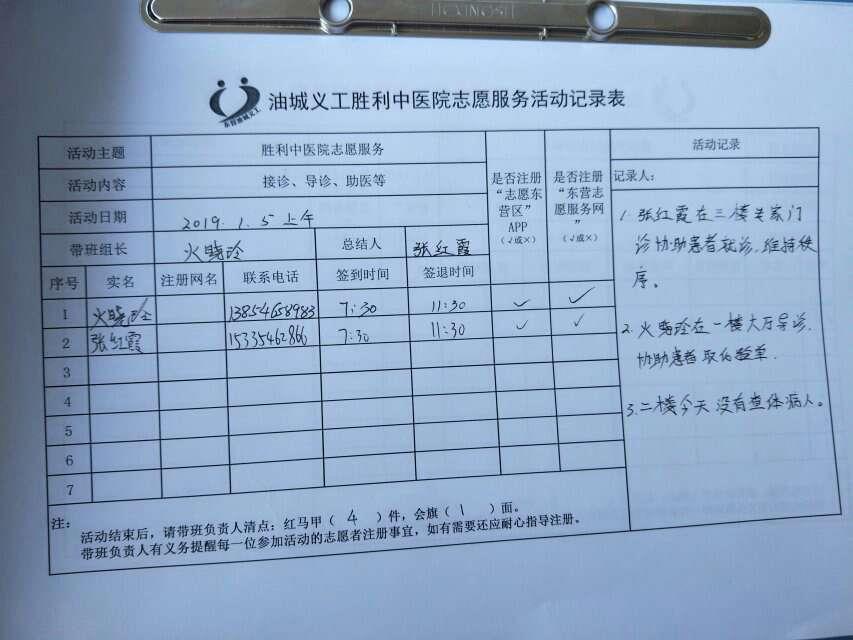 HONGSH
东营油城义工
油城义工胜利中医院志愿服务活动记录表
活动主题 胜利中医院志愿服务
活动内容 接诊、导诊、助医等
活动日期 2019.1.5上午
带班组长 火晓玲 总结人 张红霞
是否注册“志愿东营区”APP(√或×)
是否注册“东营志愿服务网”(√或×)
活动记录
记录人:
序号 实名 注册网名 联系电话 签到时间 签退时间
1 火晓玲 13854658983 7:30 11:30 ✓ ✓
2 张红霞 15335462866 7:30 11:30 ✓ ✓
3
4
5
6
7
1. 张红霞在三楼专家门
诊协助患者就诊,维持秩
序。
2. 火晓玲在一楼大厅导诊,
协助患者取化验单.
3.二楼今天没有查体病人。
注:
活动结束后,请带班负责人清点:红马甲( 4 )件,会旗( 1 )面。
带班负责人有义务提醒每一位参加活动的志愿者注册事宜,如有需要还应耐心指导注册。